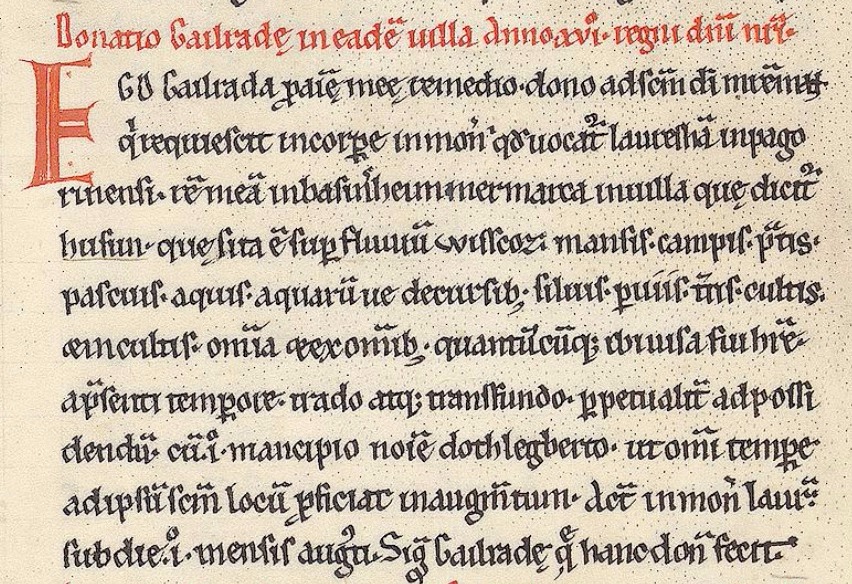 Donatio Gailradę in eadē uilla Anno xvi· regni dn̄i nr̄i·
EGO Gailrada p aīę meę remedio· dono ad sc̄m dī mr̄em N̄
q̇ requiescit in corꝑe in mon̄ qd̄ uocat̄ lauresha̅ in pago
rinensi· rē meā in basinsheim mer marca in uilla quę dicit̄
husun· quę sita ē sup fluuiū wisscoz: mansis· campis· p̄tis·
pascuis· aquis· aquarū ue decursib; siluis· ꝑuiis· tr̄is· cultis·
& incultis· om̄ia & ex om̄ib; quantūcūq; ibi uisa fui hr̄e·
a p̄senti temꝑore· trado atq; transfundo· ꝑpetualit̄ ad possi
dendū· cū ·i· mancipio noīe dothlegberto· ut om̄i temꝑe
ad ipsū sc̄m locū ꝓficiat in augm̄tum· Act̄ in mon̄ laur̄·
sub die ·i· mensis aug̅ti· Sig̅ Gailradę q̄ hanc don̄ fecit·